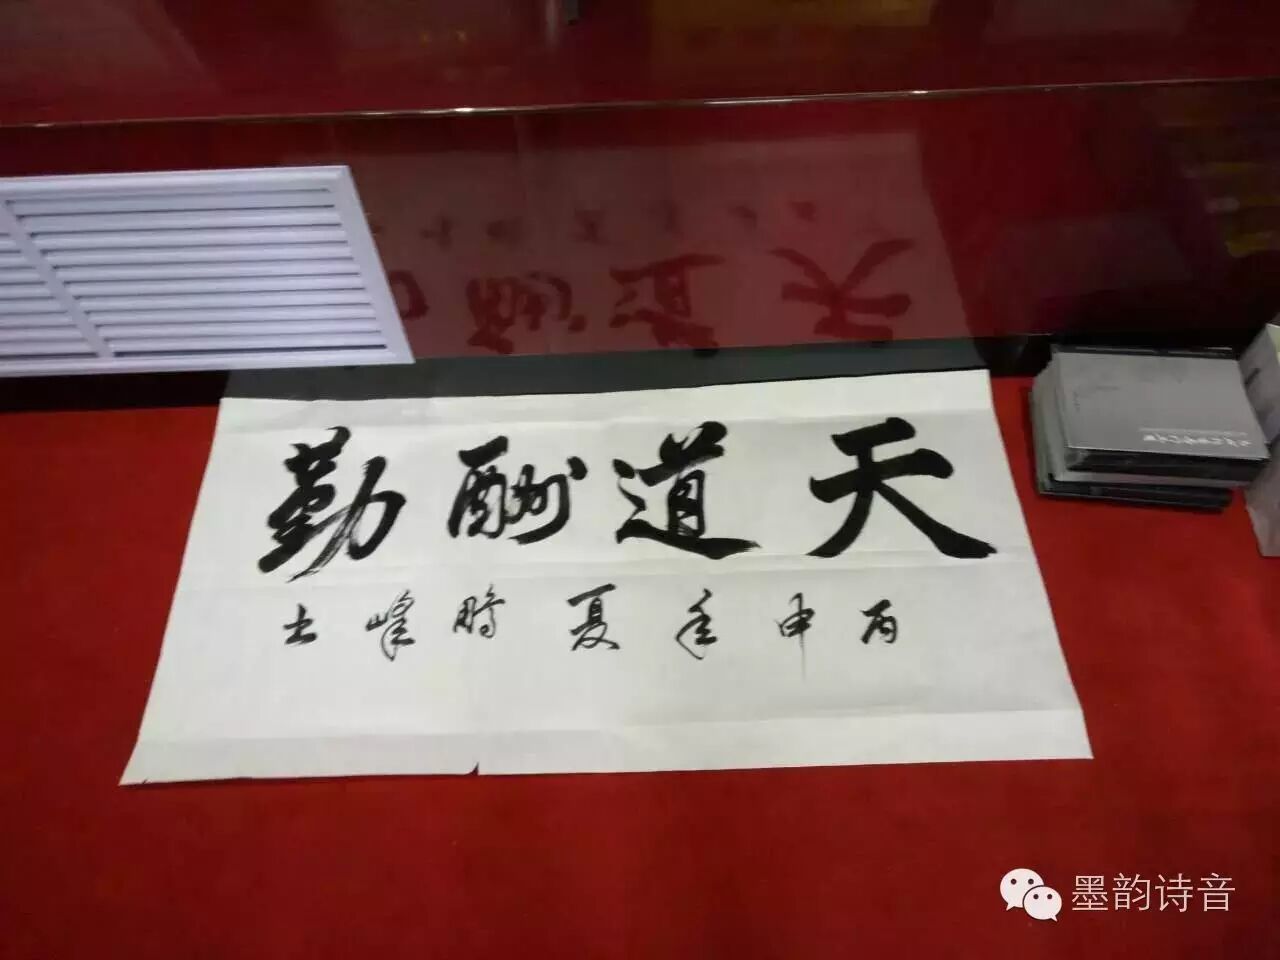 天道酬勤
丙申年夏鹏峰士
墨韵诗音